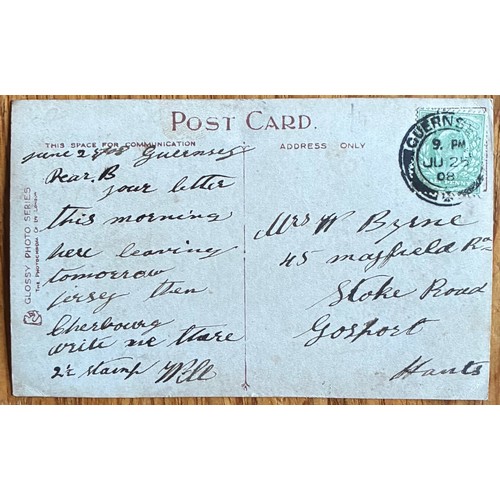 POST CARD.
THIS SPACE FOR COMMUNICATION
ADDRESS ONLY
GUERNSEY
9. PM
JU 25
08
GLOSSY PHOTO SERIES
THE PHOTOCHROM Co Ltd LONDON
June 2 Guernsey
Dear B
your letter
this morning
here leaving
tomorrow
jersey then
Cherbourg
write me thare
2½ stamp Will
Mrs W Byrne
45 Mayfield Rd
Stoke Road
Gosport
Hants